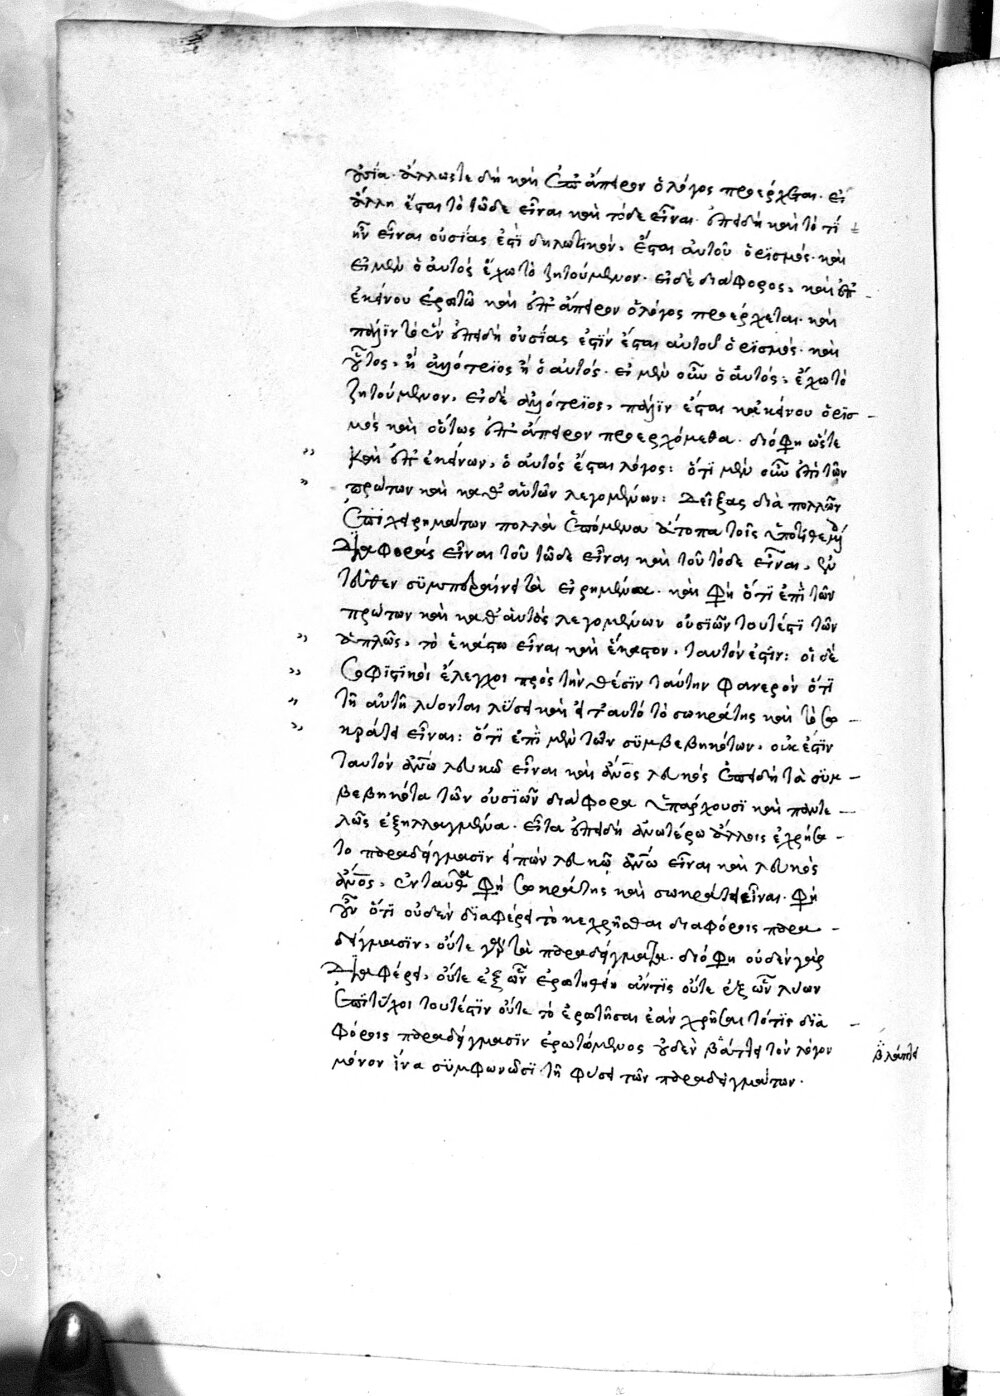 οὐσία. ἄλλως τε δὴ καὶ ἐπ' ἄπειρον ὁ λόγος προέρχεται. εἰ
ἄλλη ἔσται τὸ τῶδε εἶναι καὶ τόδε εἶναι. ἐπειδὴ καὶ τὸ τί
ἦν εἶναι οὐσίας ἐστὶ δηλωτικὸν, ἔσται αὐτοῦ ὁρισμός. καὶ
εἰ μὲν ὁ αὐτὸς ἔχω τὸ ζητούμενον. εἰ δὲ διάφορος, καὶ ἐπ'
ἐκείνου ἐρωτῶ καὶ ἐπ' ἄπειρον ὁ λόγος προέρχεται. καὶ
πάλιν τὸ ἓν ἐπειδὴ οὐσίας ἐστὶν ἔσται αὐτοῦ ὁρισμός. καὶ
οὗτος, ἢ ἀλλότριος ἢ ὁ αὐτός. εἰ μὲν οὖν ὁ αὐτός, ἔχω τὸ
ζητούμενον, εἰ δὲ ἀλλότριος, πάλιν ἔσται κἀκείνου ὁρισ-
μὸς καὶ οὕτως ἐπ' ἄπειρον προερχόμεθα. διό φη ὥστε
καὶ ἐπ' ἐκείνων, ὁ αὐτὸς ἔσται λόγος: ὅτι μὲν οὖν ἐπὶ τῶν
πρώτων καὶ καθ' αὑτῶν λεγομένων: Δείξας διὰ πολλῶν
ἐπιχειρημάτων πολλὰ ἑπόμενα ἄτοπα τοῖς ὑποτιθεμένοις
διαφορὰς εἶναι τοῦ τῶδε εἶναι καὶ τοῦ τόδε εἶναι, νῦν
τοῦθεν συμπεραίνει τὰ εἰρημένα. καὶ φη ὅτι ἐπὶ τῶν
πρώτων καὶ καθ' αὑτὸς λεγομένων οὐσιῶν τουτέστι τῶν
ἁπλῶς, τὸ ἑκάστω εἶναι καὶ ἕκαστον, ταυτόν ἐστιν: οἱ δὲ
σοφιστικοὶ ἔλεγχοι πρὸς τὴν θέσιν ταύτην φανερὸν ὅτι
τῇ αὐτῇ λύονται λύσει καὶ εἰ ταυτὸ τὸ σωκράτης καὶ τὸ σω-
κράτει εἶναι: ὅτι ἐπὶ μὲν τῶν συμβεβηκότων, οὐκ ἔστιν
ταυτὸν ἀνω λευκῶ εἶναι καὶ ἄνος λευκός ἐπειδὴ τὰ συμ-
βεβηκότα τῶν οὐσιῶν διάφορα ὑπάρχουσι καὶ παντε-
λῶς ἐξηλλαγμένα. εἶτα ἐπειδὴ ἀνωτέρω ἄλλοις ἐχρήσα-
το παραδείγμασιν εἰπὼν λευκῶ ἀνω εἶναι καὶ λευκὸς
ἄνος, ἐνταῦθα φη σωκράτης καὶ σωκράτει εἶναι. φη
οὖν ὅτι οὐδὲν διαφέρει τὸ κεχρῆσθαι διαφόροις παρα-
δείγμασιν, οὔτε γὰρ τὰ παραδείγματα. διό φη οὐδὲν γὰρ
διαφέρει, οὔτε ἐξ ὧν ἐρωτήσει ἄν τις οὔτε ἐξ ὧν λύων
ἐπιτύχοι τουτέστιν οὔτε τὸ ἐρωτῆσαι ἐὰν χρῆται τότις δια-
φόροις παραδείγμασιν ἐρωτώμενος οὐδὲν βάπτει τὸν λόγον
μόνον ἵνα συμφωνῶσι τῇ φύσει τῶν παραδειγμάτων.
βλάπτει